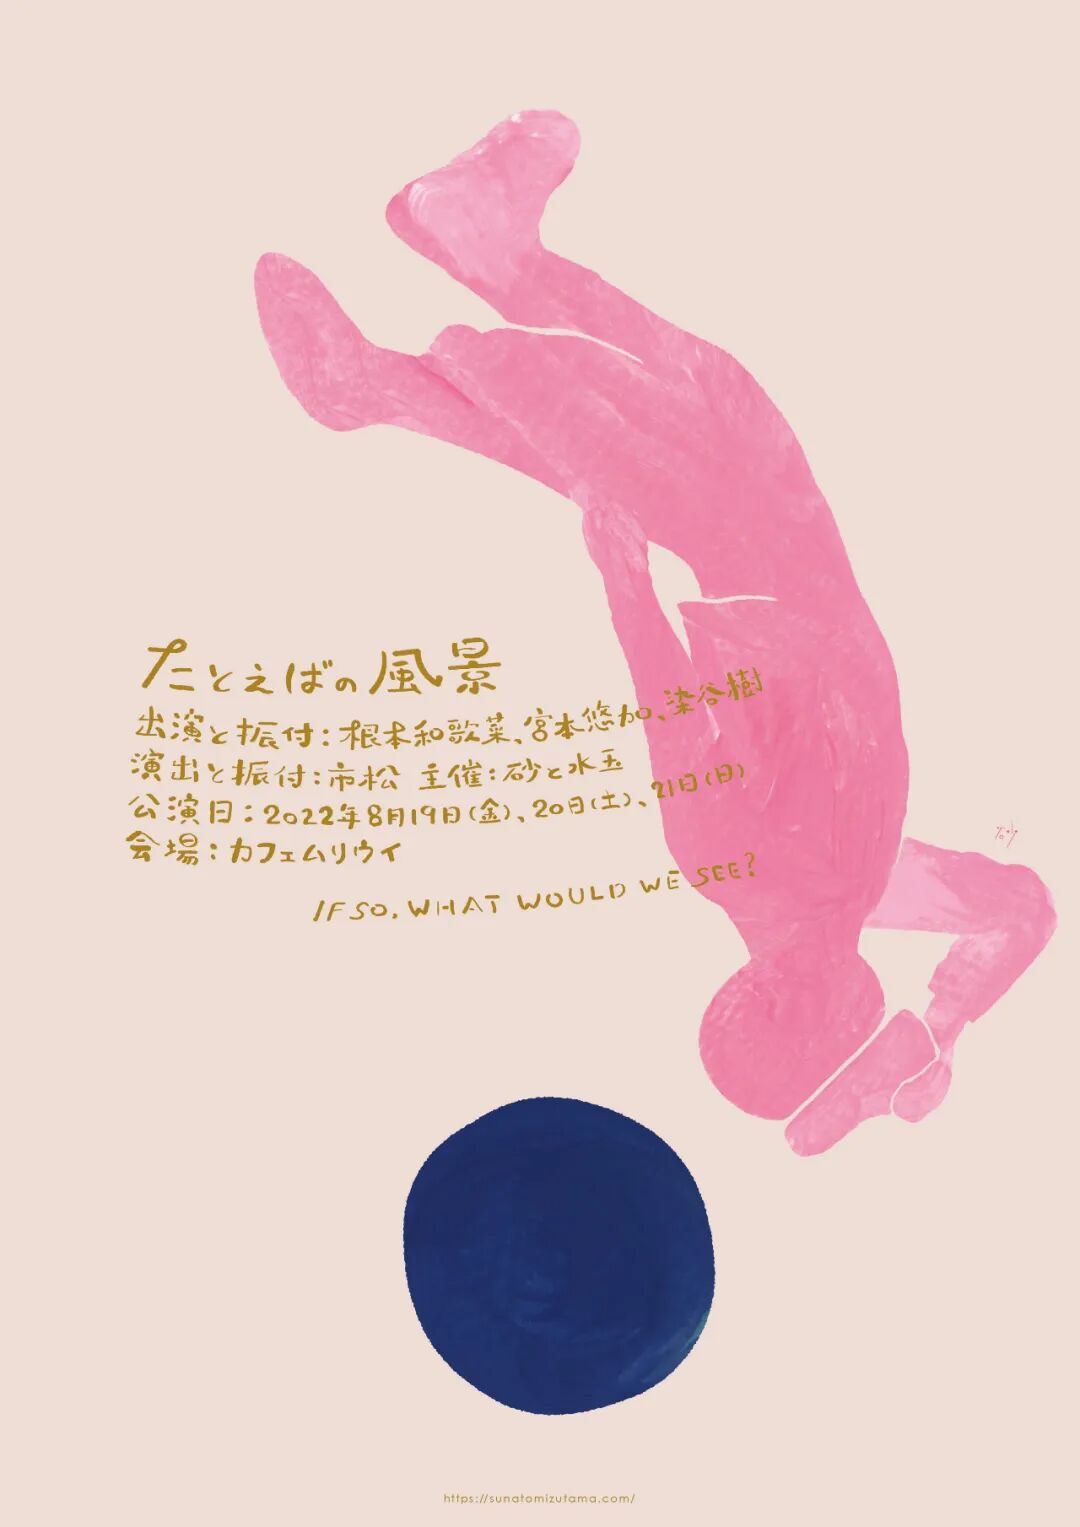 たとえばの風景
出演と振付：根本和歌菜、宮本悠加、染谷樹
演出と振付：市松 主催：砂と水玉
公演日：2022年8月19日(金)、20日(土)、21日(日)
会場：カフェムリウイ
IF SO, WHAT WOULD WE SEE?
https://sunatomizutama.com/